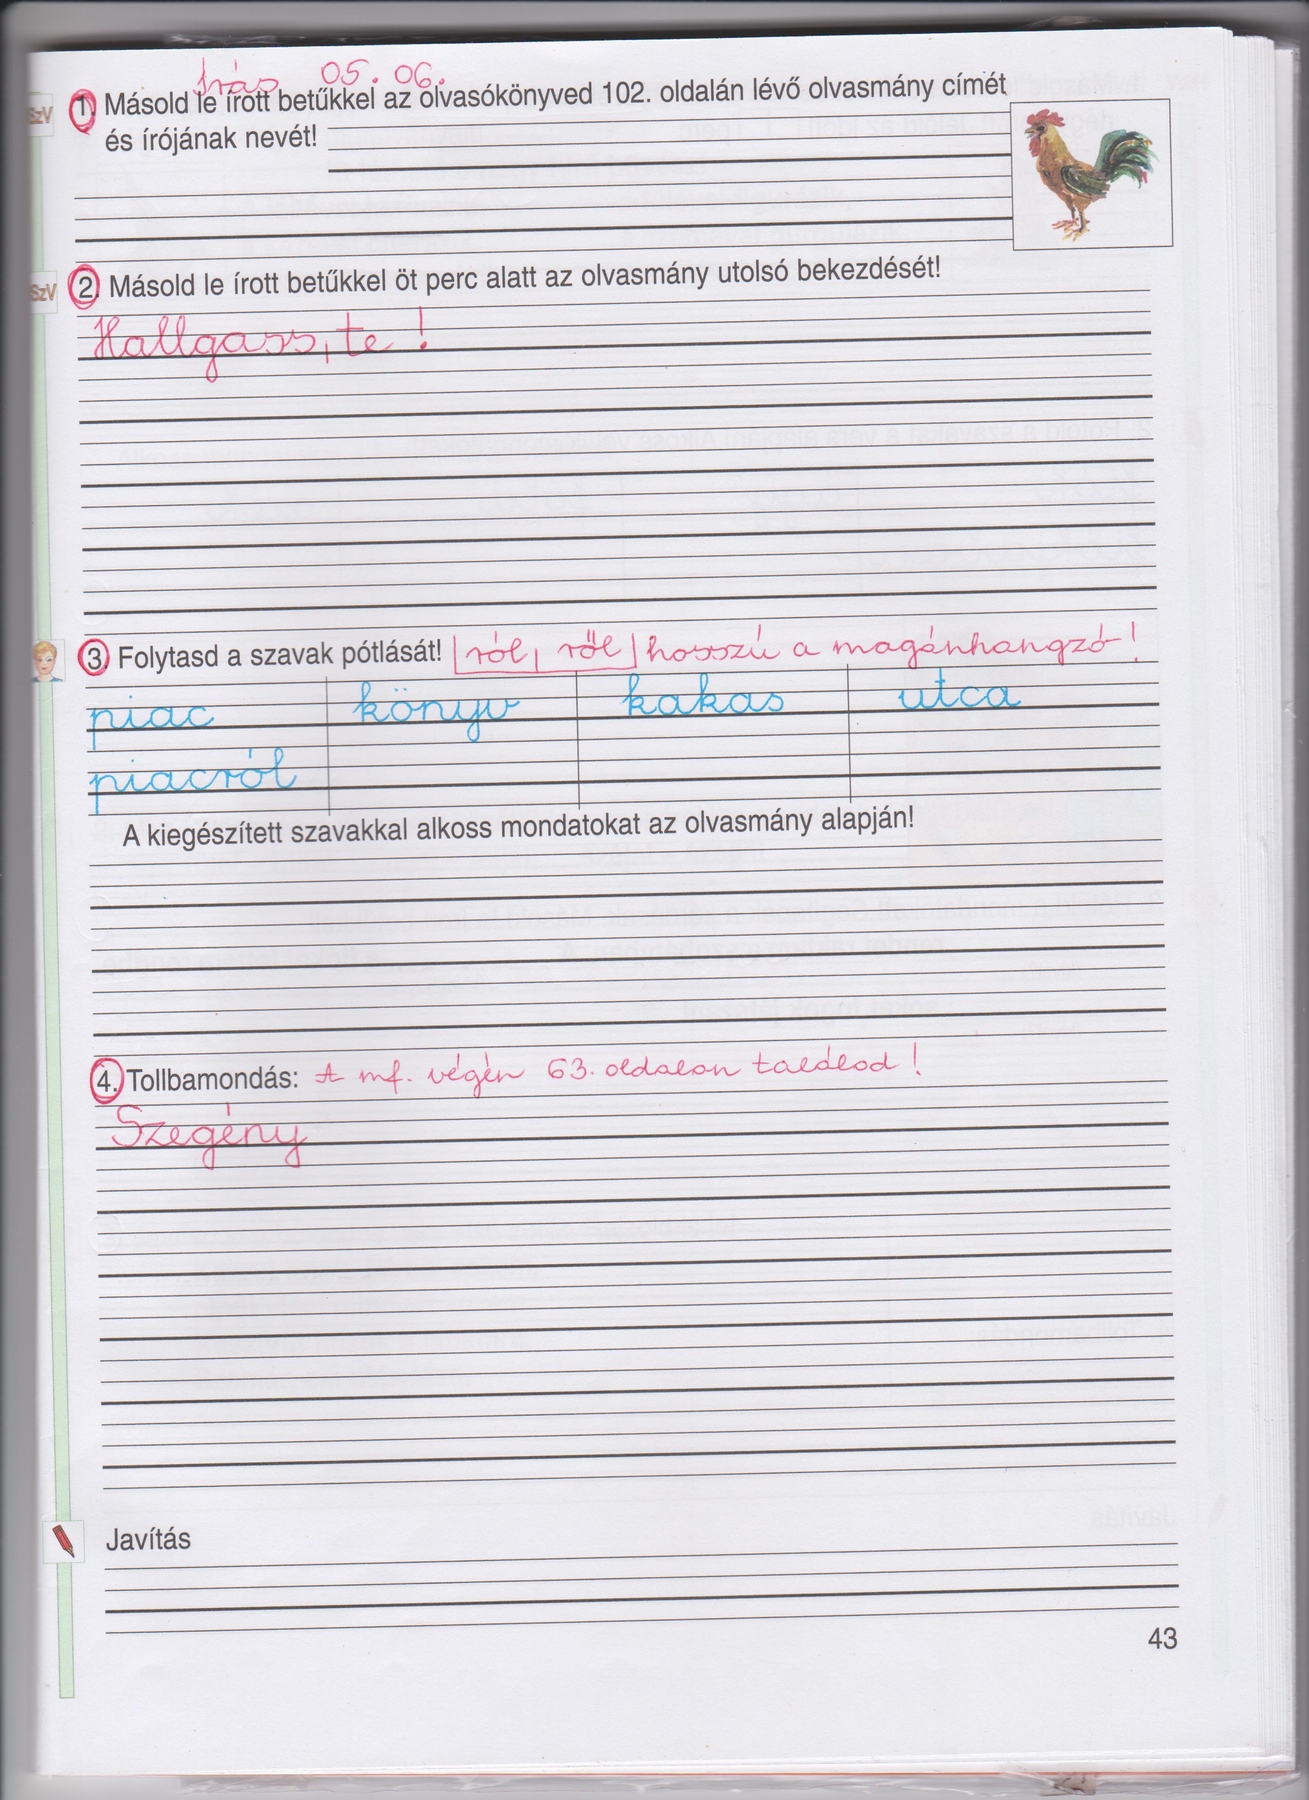 Írás 05. 06.
SzV 1. Másold le írott betűkkel az olvasókönyved 102. oldalán lévő olvasmány címét
és írójának nevét!
SzV 2. Másold le írott betűkkel öt perc alatt az olvasmány utolsó bekezdését!
Hallgass, te!
3. Folytasd a szavak pótlását! ról, ről hosszú a magánhangzó!
piac könyv kakas utca
piacról
A kiegészített szavakkal alkoss mondatokat az olvasmány alapján!
4. Tollbamondás: A mf. végén 63. oldalon találod!
Szegény
Javítás
43